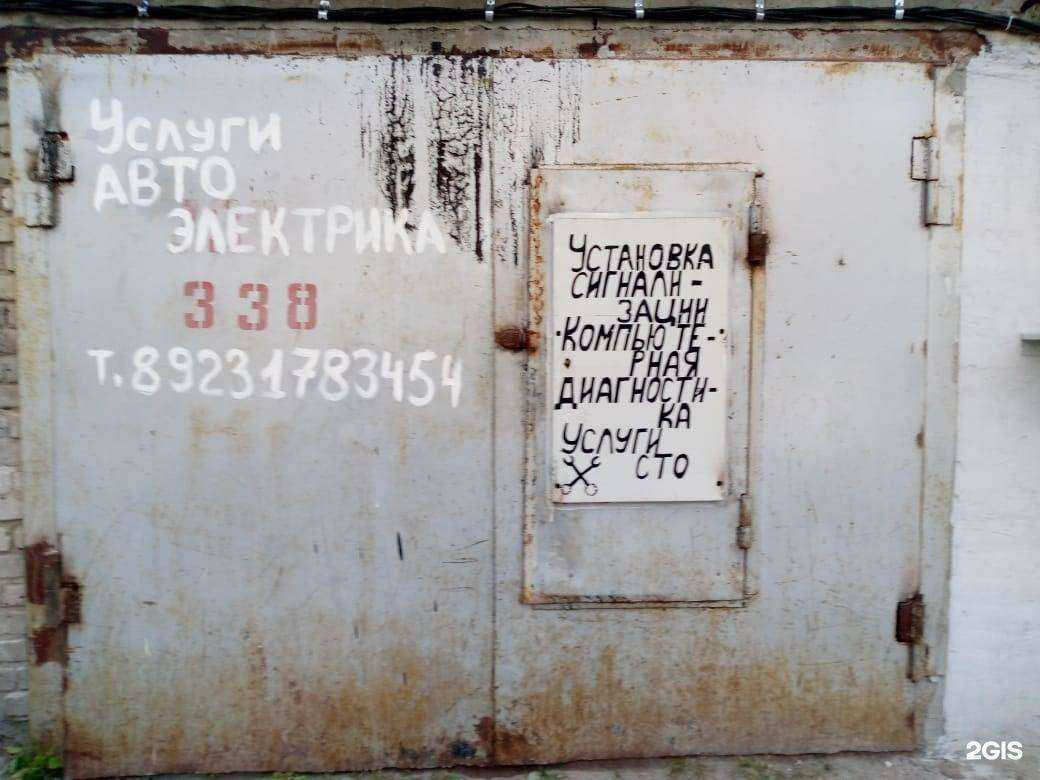 Услуги
АВТО
ЭЛЕКТРИКА
338
т.89231783454
Установка
сигнали-
зации
Компьюте-
рная
диагности-
ка
Услуги
СТО
2GIS